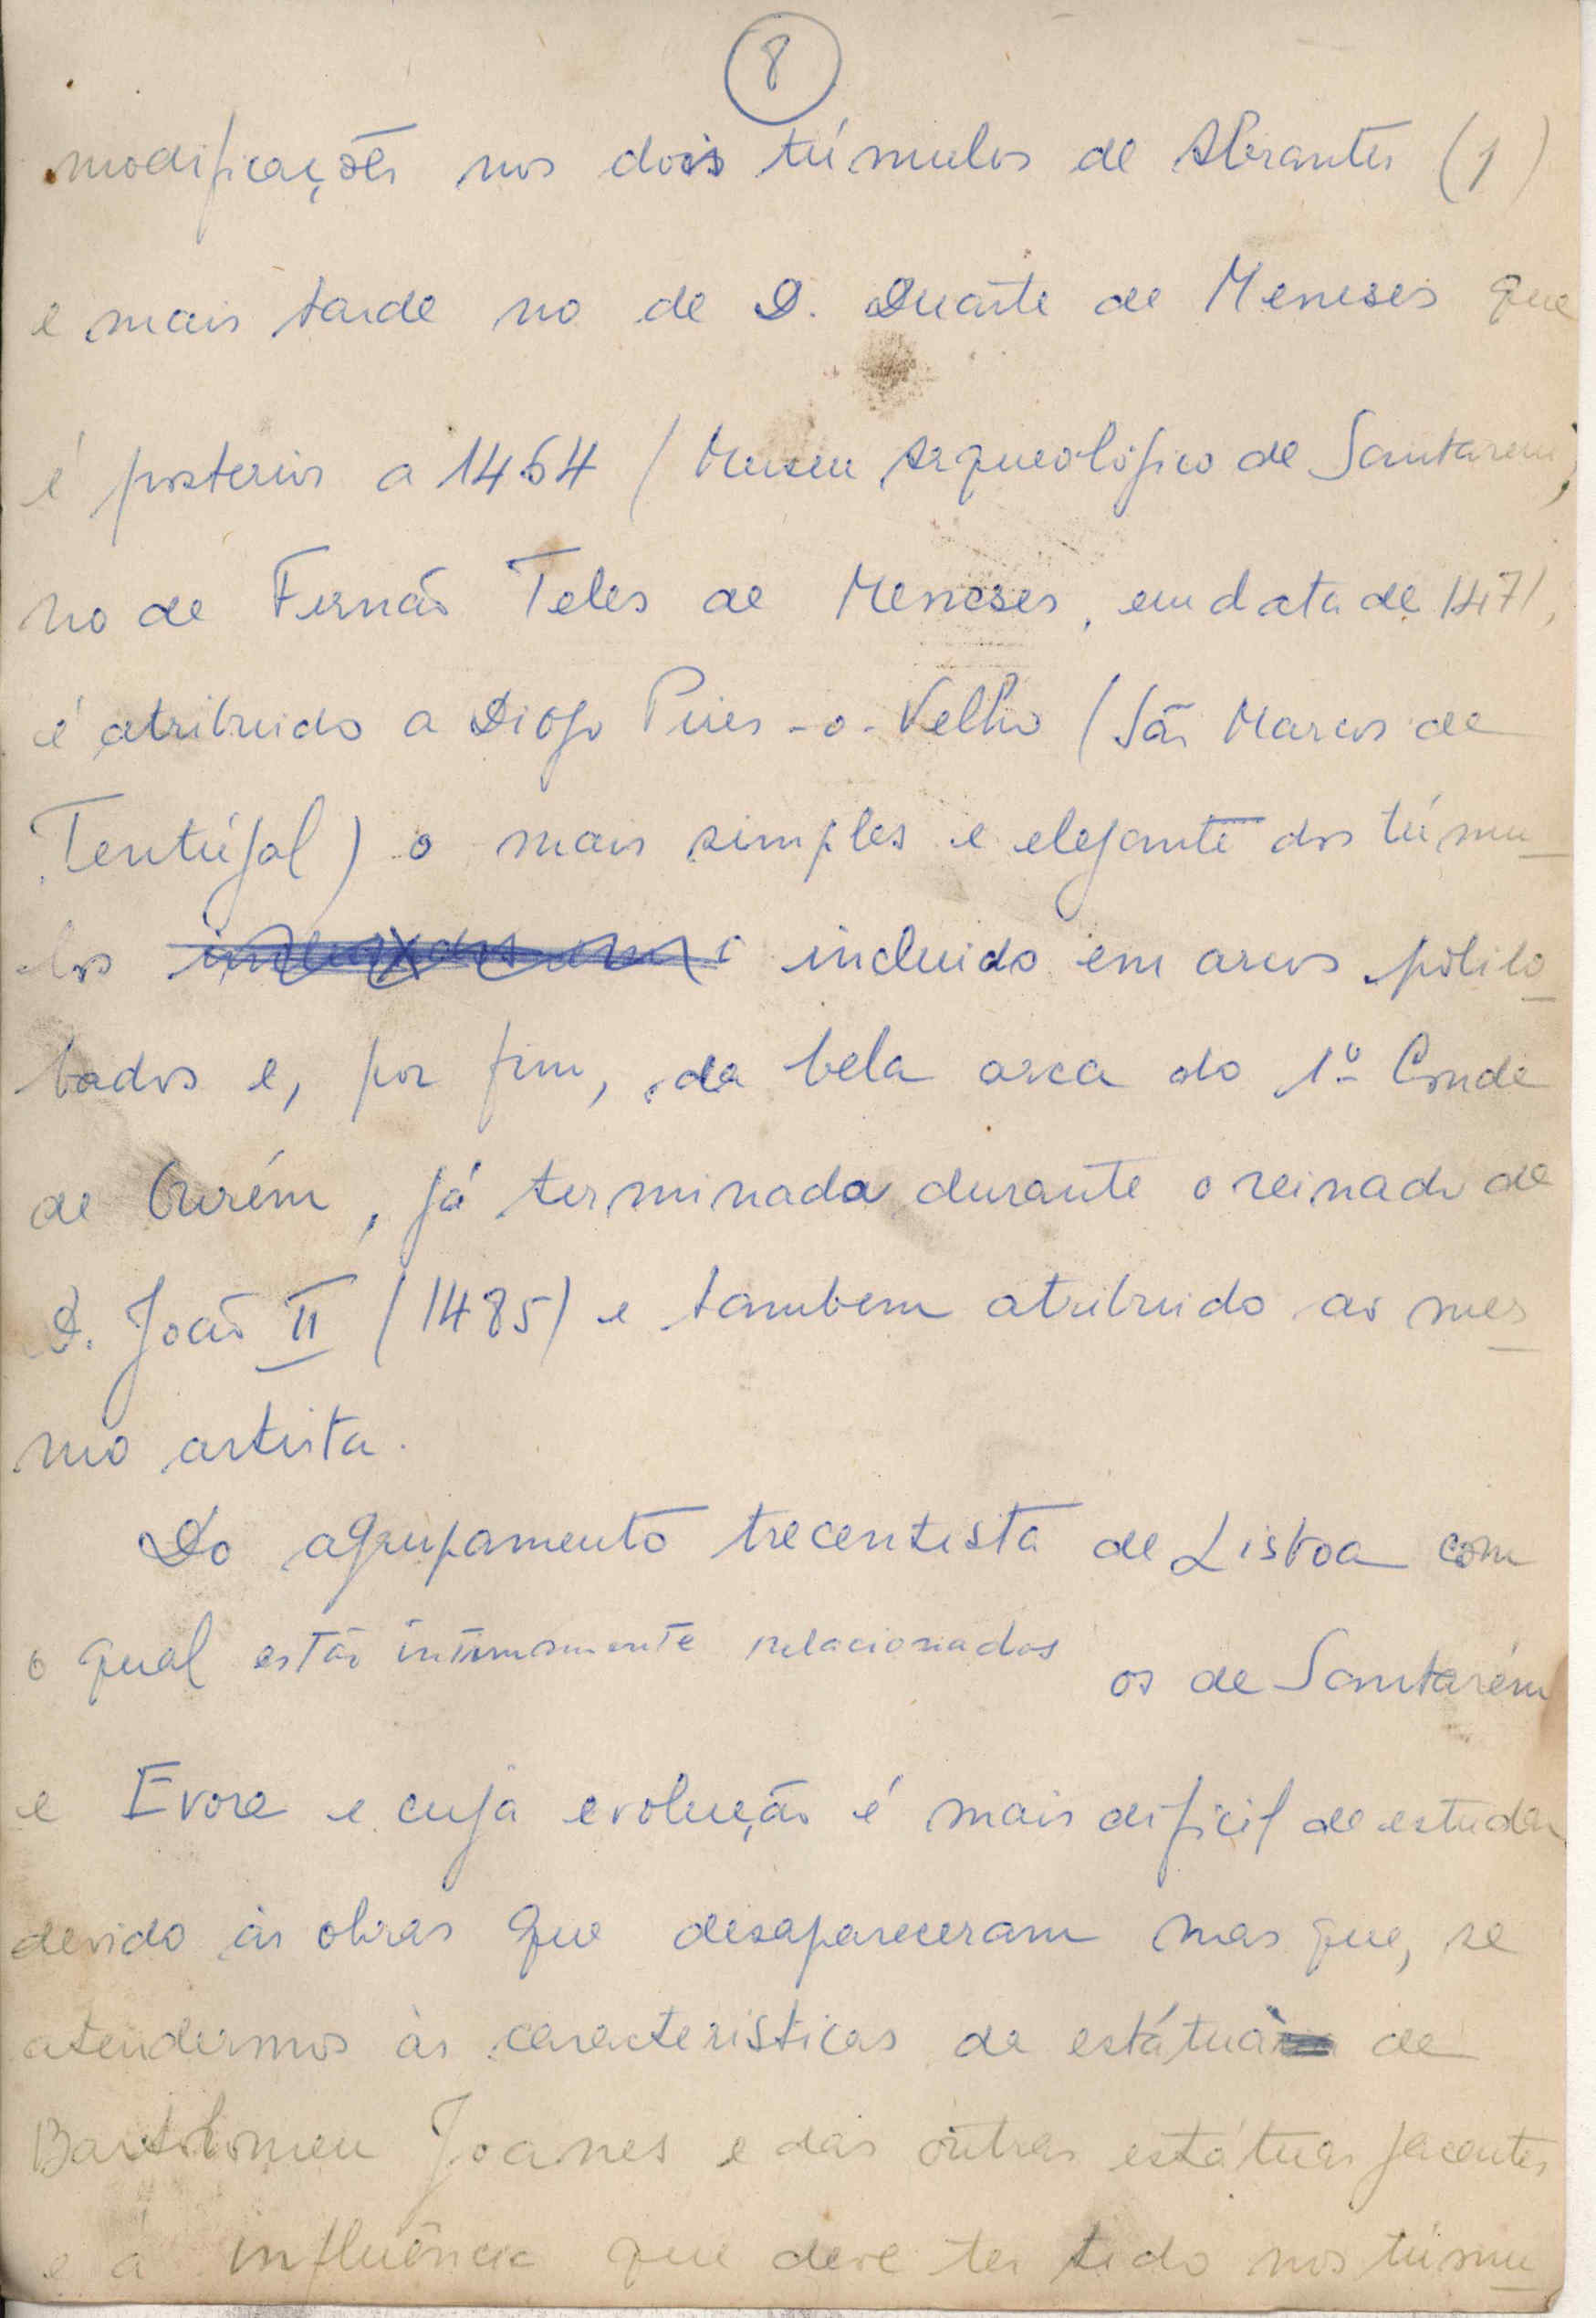 8
modificações nos dois túmulos de Abrantes (1)
e mais tarde no de D. Duarte de Meneses que
é posterior a 1464 (Museu Arqueológico de Santarem;
no de Fernão Teles de Meneses, em data de 1471,
é atribuido a Diogo Pires-o-Velho (São Marcos de
Tentúgal) o mais simples e elegante dos túmu_
los incluido em arcos polilo_
bados e, por fim, da bela arca do 1º Conde
de Ourém, já terminada durante o reinado de
D. João II (1485) e tambem atribuido ao mes_
mo artista.
Do agrupamento trecentista de Lisboa com
o qual estão intimamente relacionados os de Santarém
e Evora e cuja evolução é mais dificil de estudar
devido às obras que desapareceram mas que, se
atendermos às caracteristicas da estátua de
Bartolomeu Joanes e das outras estátuas jacentes
e à influência que deve ter tido nos túmu_